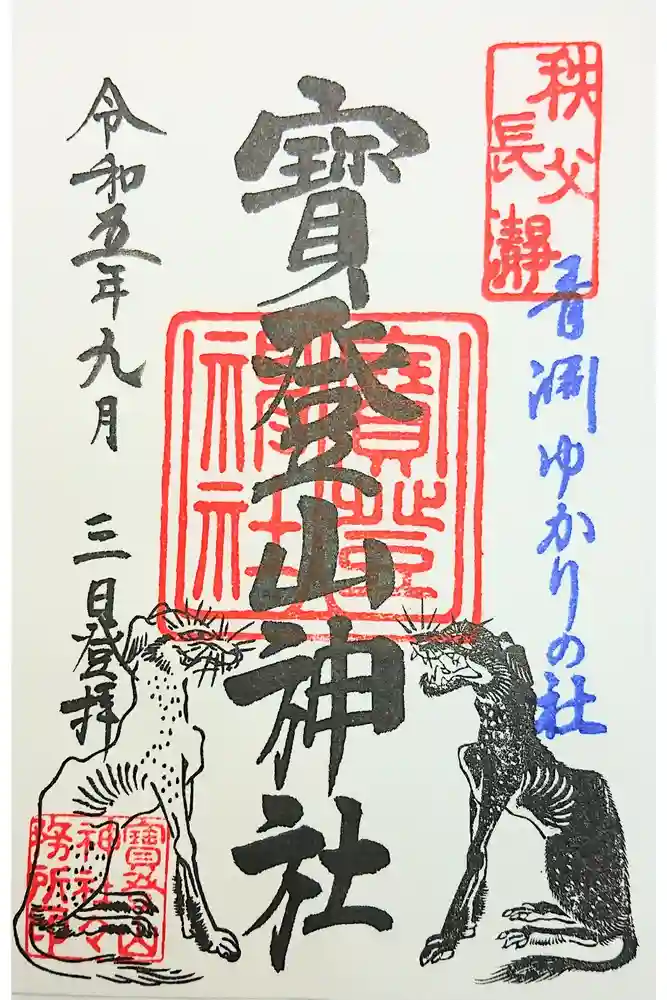 秩父
長瀞
青淵ゆかりの社
寳登山神社
寳登
神社
令和五年九月三日登拝
寳登山
神社々
務所印